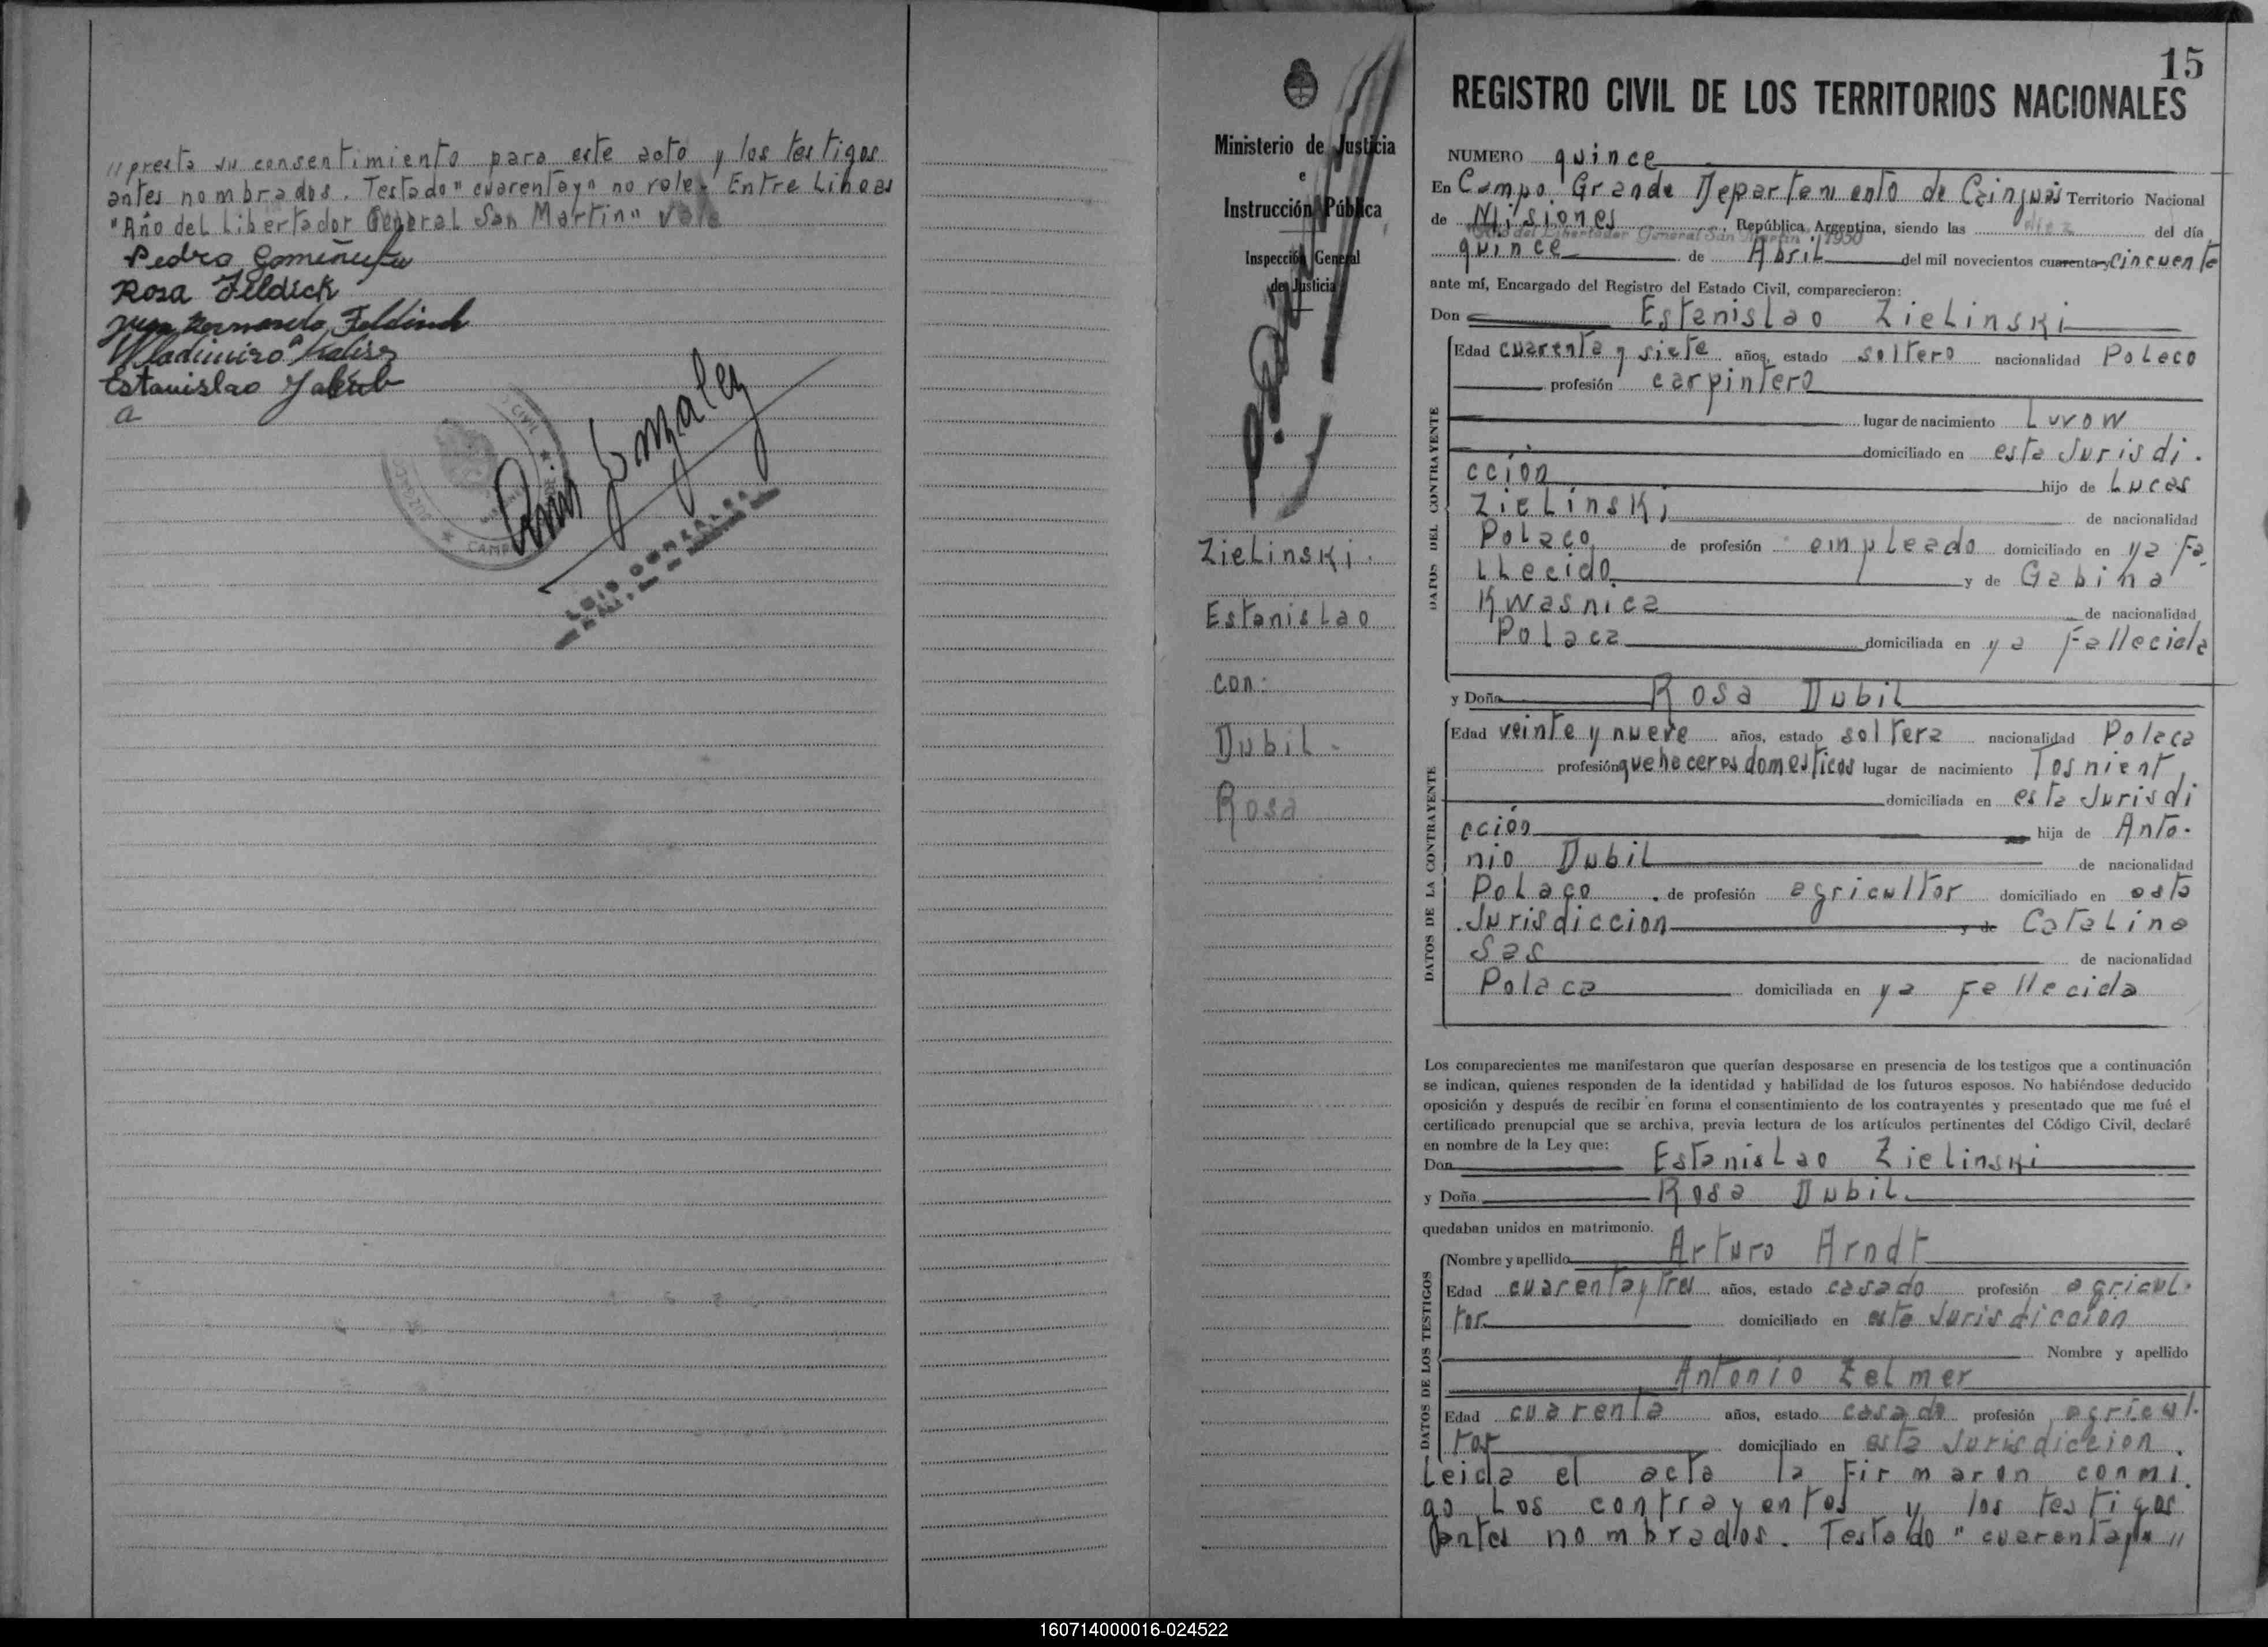 //presta su consentimiento para este acto y los testigos
antes nombrados. Testado "cuarentay" no vale. Entre Lineas
"Año del Libertador General San Martin" Vale
Pedro
Rosa Feldick
Juan Bernardo
Wladimiro
Estanislao Jakub
a
Luis Gonzalez
LUIS GONZALEZ
Ministerio de Justicia
e
Instrucción Pública
Inspección General
de Justicia
Zielinski.
Estanislao
con:
Dubil.
Rosa
15
REGISTRO CIVIL DE LOS TERRITORIOS NACIONALES
NUMERO quince
En Campo Grande Departamento de Cainguás Territorio Nacional
de Misiones, República Argentina, siendo las diez del día
"Año del Libertador General San Martin" 1950
quince de Abril del mil novecientos cuarenta y cincuenta
ante mí, Encargado del Registro del Estado Civil, comparecieron:
Don Estanislao Zielinski
DATOS DEL CONTRAYENTE
Edad cuarenta y siete años, estado soltero nacionalidad Polaco
profesión carpintero
lugar de nacimiento Luvow
domiciliado en esta Jurisdi.
cción hijo de Lucas
Zielinski de nacionalidad
Polaco de profesión empleado domiciliado en ya Fa.
llecido. y de Gabina
Kwasnica de nacionalidad
Polaca domiciliada en ya Fallecida
y Doña Rosa Dubil
DATOS DE LA CONTRAYENTE
Edad veinte y nueve años, estado soltera nacionalidad Polaca
profesión quehaceres domesticos lugar de nacimiento Tosnient,
domiciliada en esta Jurisdi
cción hija de Anto.
nio Dubil de nacionalidad
Polaco. de profesión agricultor domiciliado en esta
Jurisdiccion y de Catalina
Sas de nacionalidad
Polaca domiciliada en ya Fallecida
Los comparecientes me manifestaron que querían desposarse en presencia de los testigos que a continuación
se indican, quienes responden de la identidad y habilidad de los futuros esposos. No habiéndose deducido
oposición y después de recibir en forma el consentimiento de los contrayentes y presentado que me fué el
certificado prenupcial que se archiva, previa lectura de los artículos pertinentes del Código Civil, declaré
en nombre de la Ley que:
Don Estanislao Zielinski
y Doña Rosa Dubil.
quedaban unidos en matrimonio.
DATOS DE LOS TESTIGOS
Nombre y apellido Arturo Arndt
Edad cuarenta y tres años, estado casado profesión agricul.
tor domiciliado en esta Jurisdiccion
Nombre y apellido
Antonio Zelmer
Edad cuarenta años, estado casado profesión agricul.
tor domiciliado en esta Jurisdiccion.
Leida el acta la Firmaron conmi.
go Los contrayentes y los testigos
antes nombrados. Testado "cuarentay"
160714000016-024522